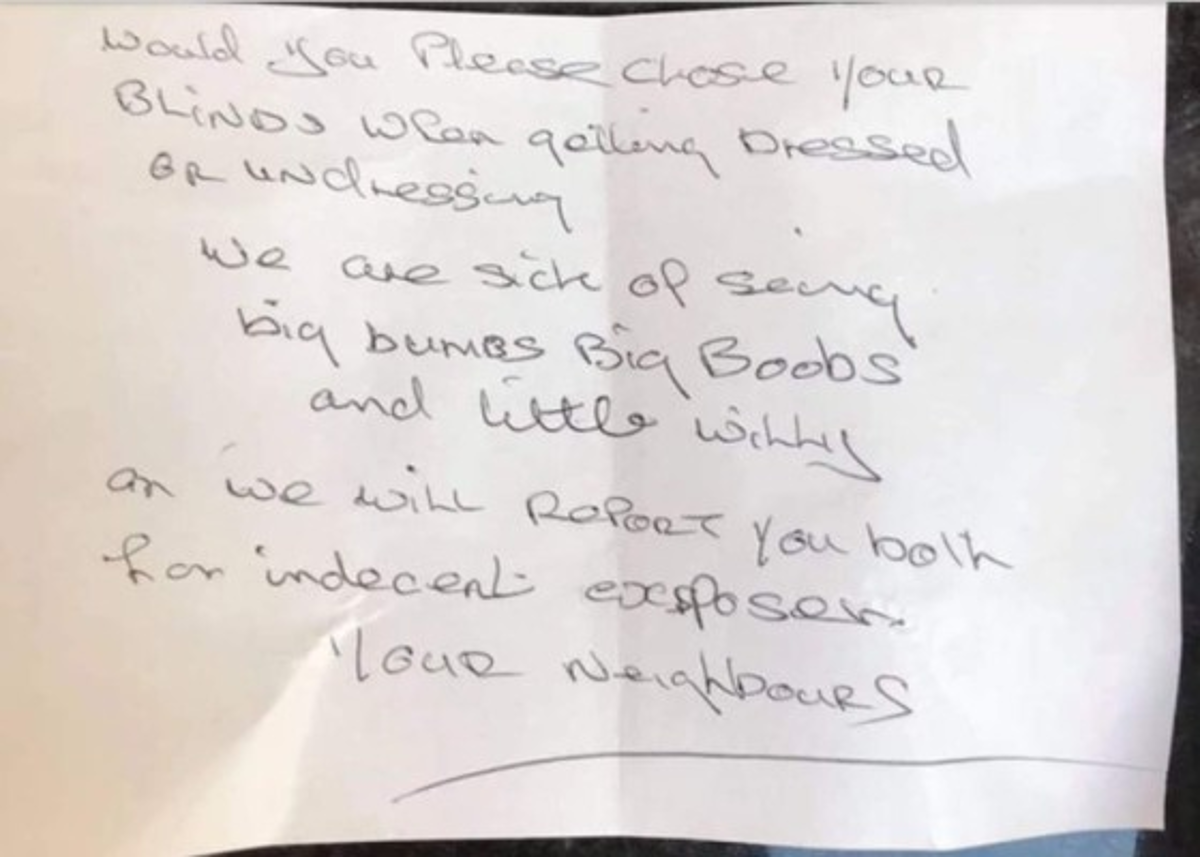 would you Please chose your
BLiNDs when getting Dressed
OR undressing
we are sick of seing
big bumbs Big Boobs
and little willy
or we will RePoRT you both
for indecent exsposer.
Your NeighbouRS